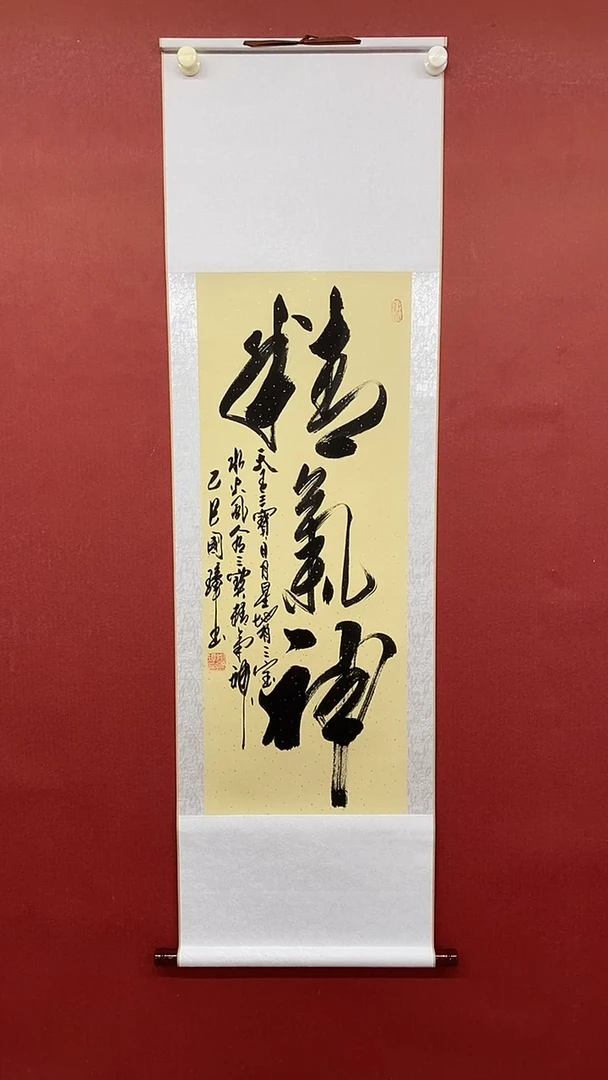 精氣神
天有三寶日月星地有三宝
水火風人有三寶精氣神
乙巳國瑋書